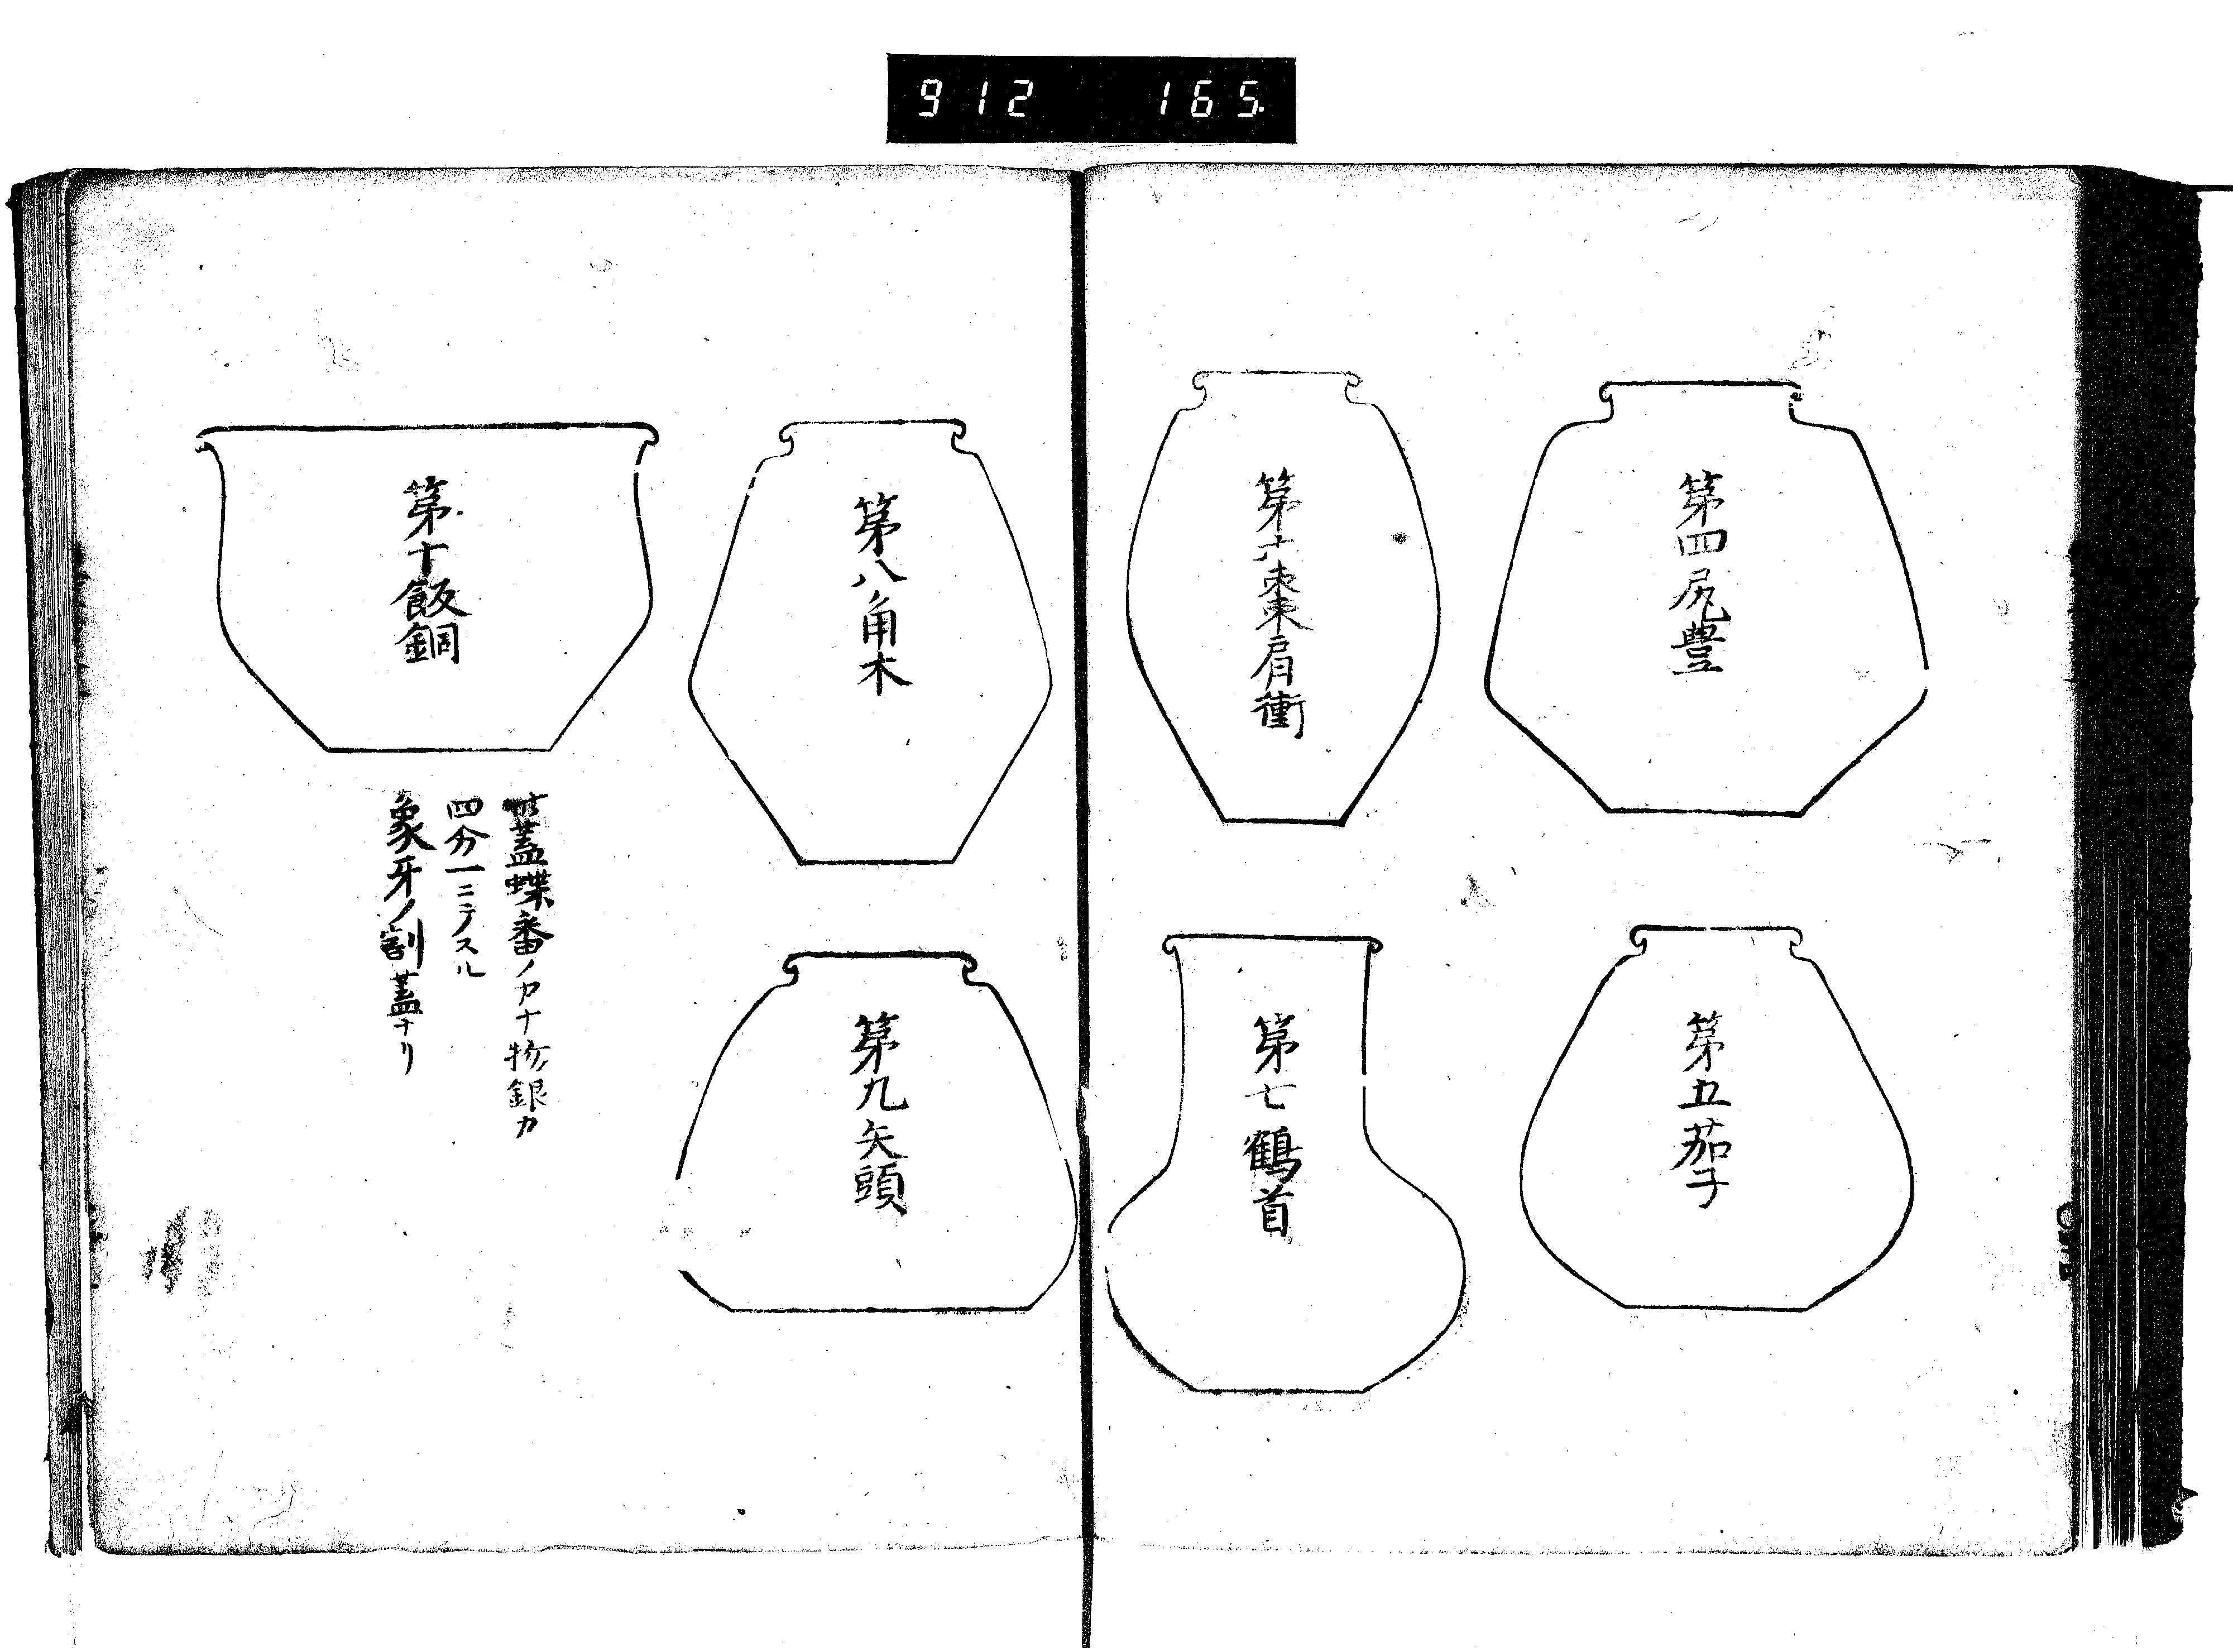 912 165
第四尻豊
第五茄子
第六棗肩衝
第七鶴首
第八角木
第九矢頭
第十飯銅
蓋蝶番ノカナ物銀カ
四分一ニテスル
象牙ノ割蓋ナリ